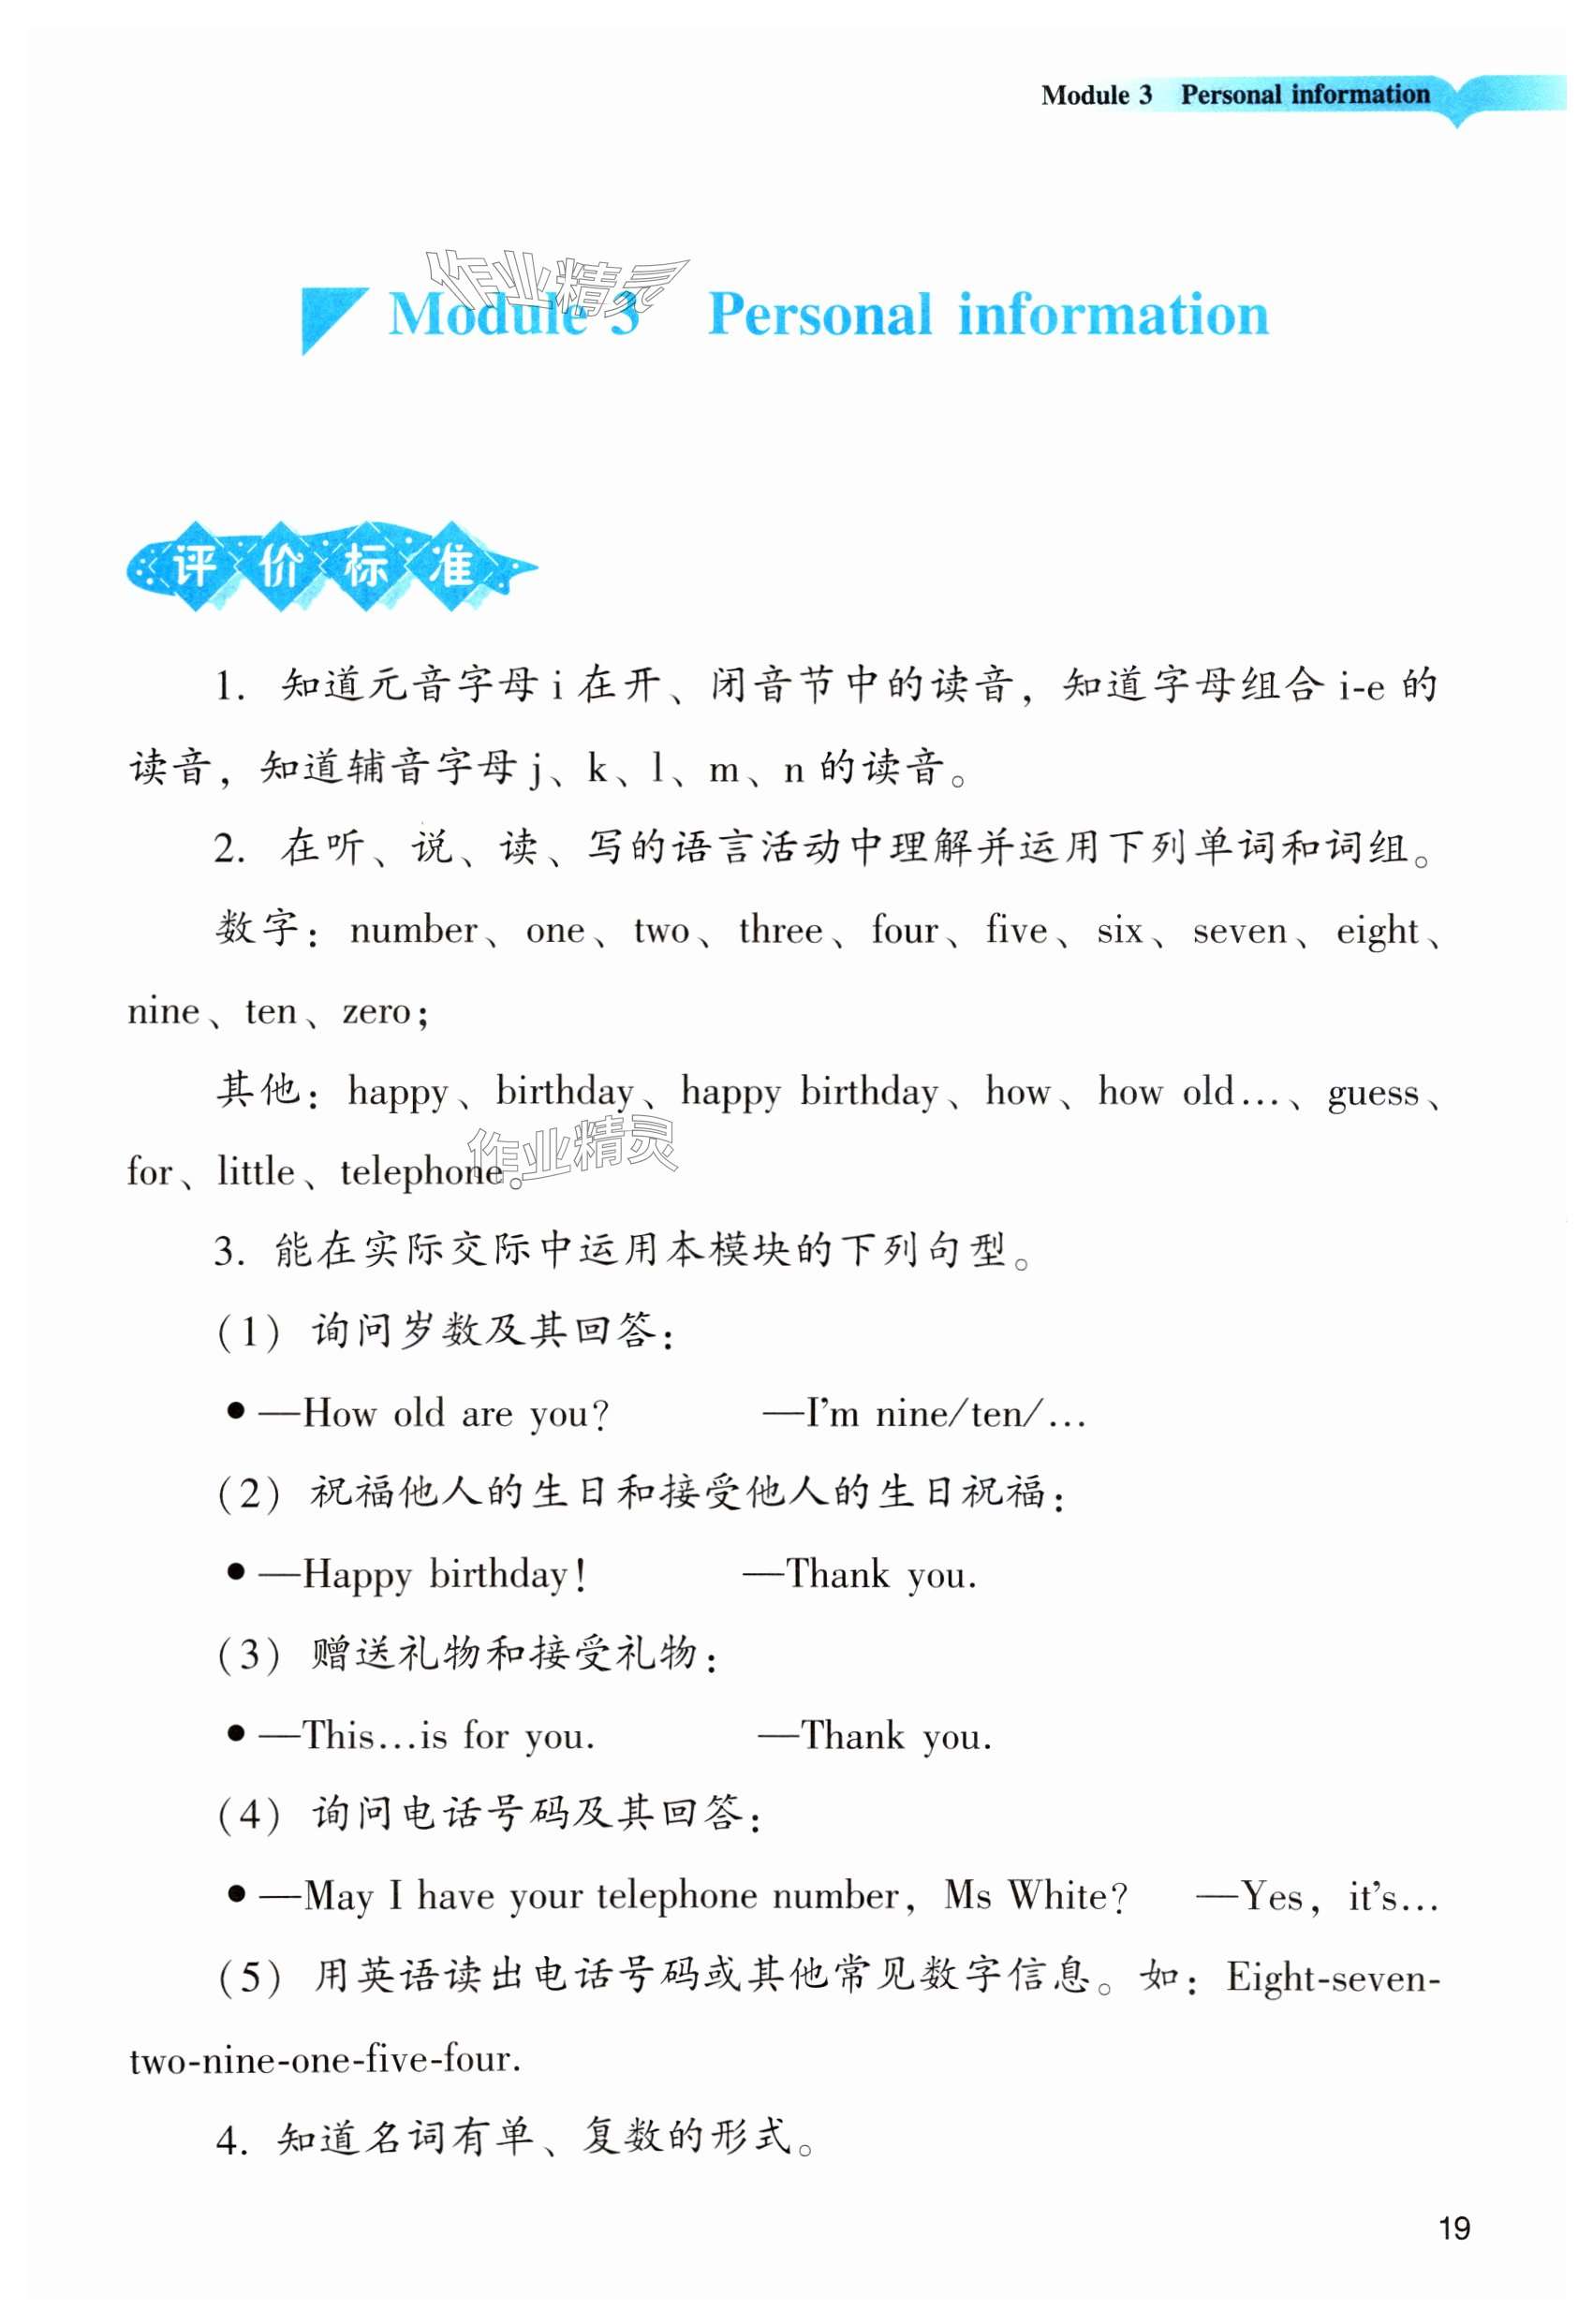 Module 3 Personal information
作业精灵
Module 3 Personal information
评价标准
1. 知道元音字母 i 在开、闭音节中的读音，知道字母组合 i-e 的
读音，知道辅音字母 j、k、l、m、n 的读音。
2. 在听、说、读、写的语言活动中理解并运用下列单词和词组。
数字：number、one、two、three、four、five、six、seven、eight、
nine、ten、zero；
其他：happy、birthday、happy birthday、how、how old…、guess、
for、little、telephone。
作业精灵
3. 能在实际交际中运用本模块的下列句型。
（1）询问岁数及其回答：
●—How old are you? —I'm nine/ten/…
（2）祝福他人的生日和接受他人的生日祝福：
●—Happy birthday! —Thank you.
（3）赠送礼物和接受礼物：
●—This…is for you. —Thank you.
（4）询问电话号码及其回答：
●—May I have your telephone number, Ms White? —Yes, it's…
（5）用英语读出电话号码或其他常见数字信息。如：Eight-seven-
two-nine-one-five-four.
4. 知道名词有单、复数的形式。
19